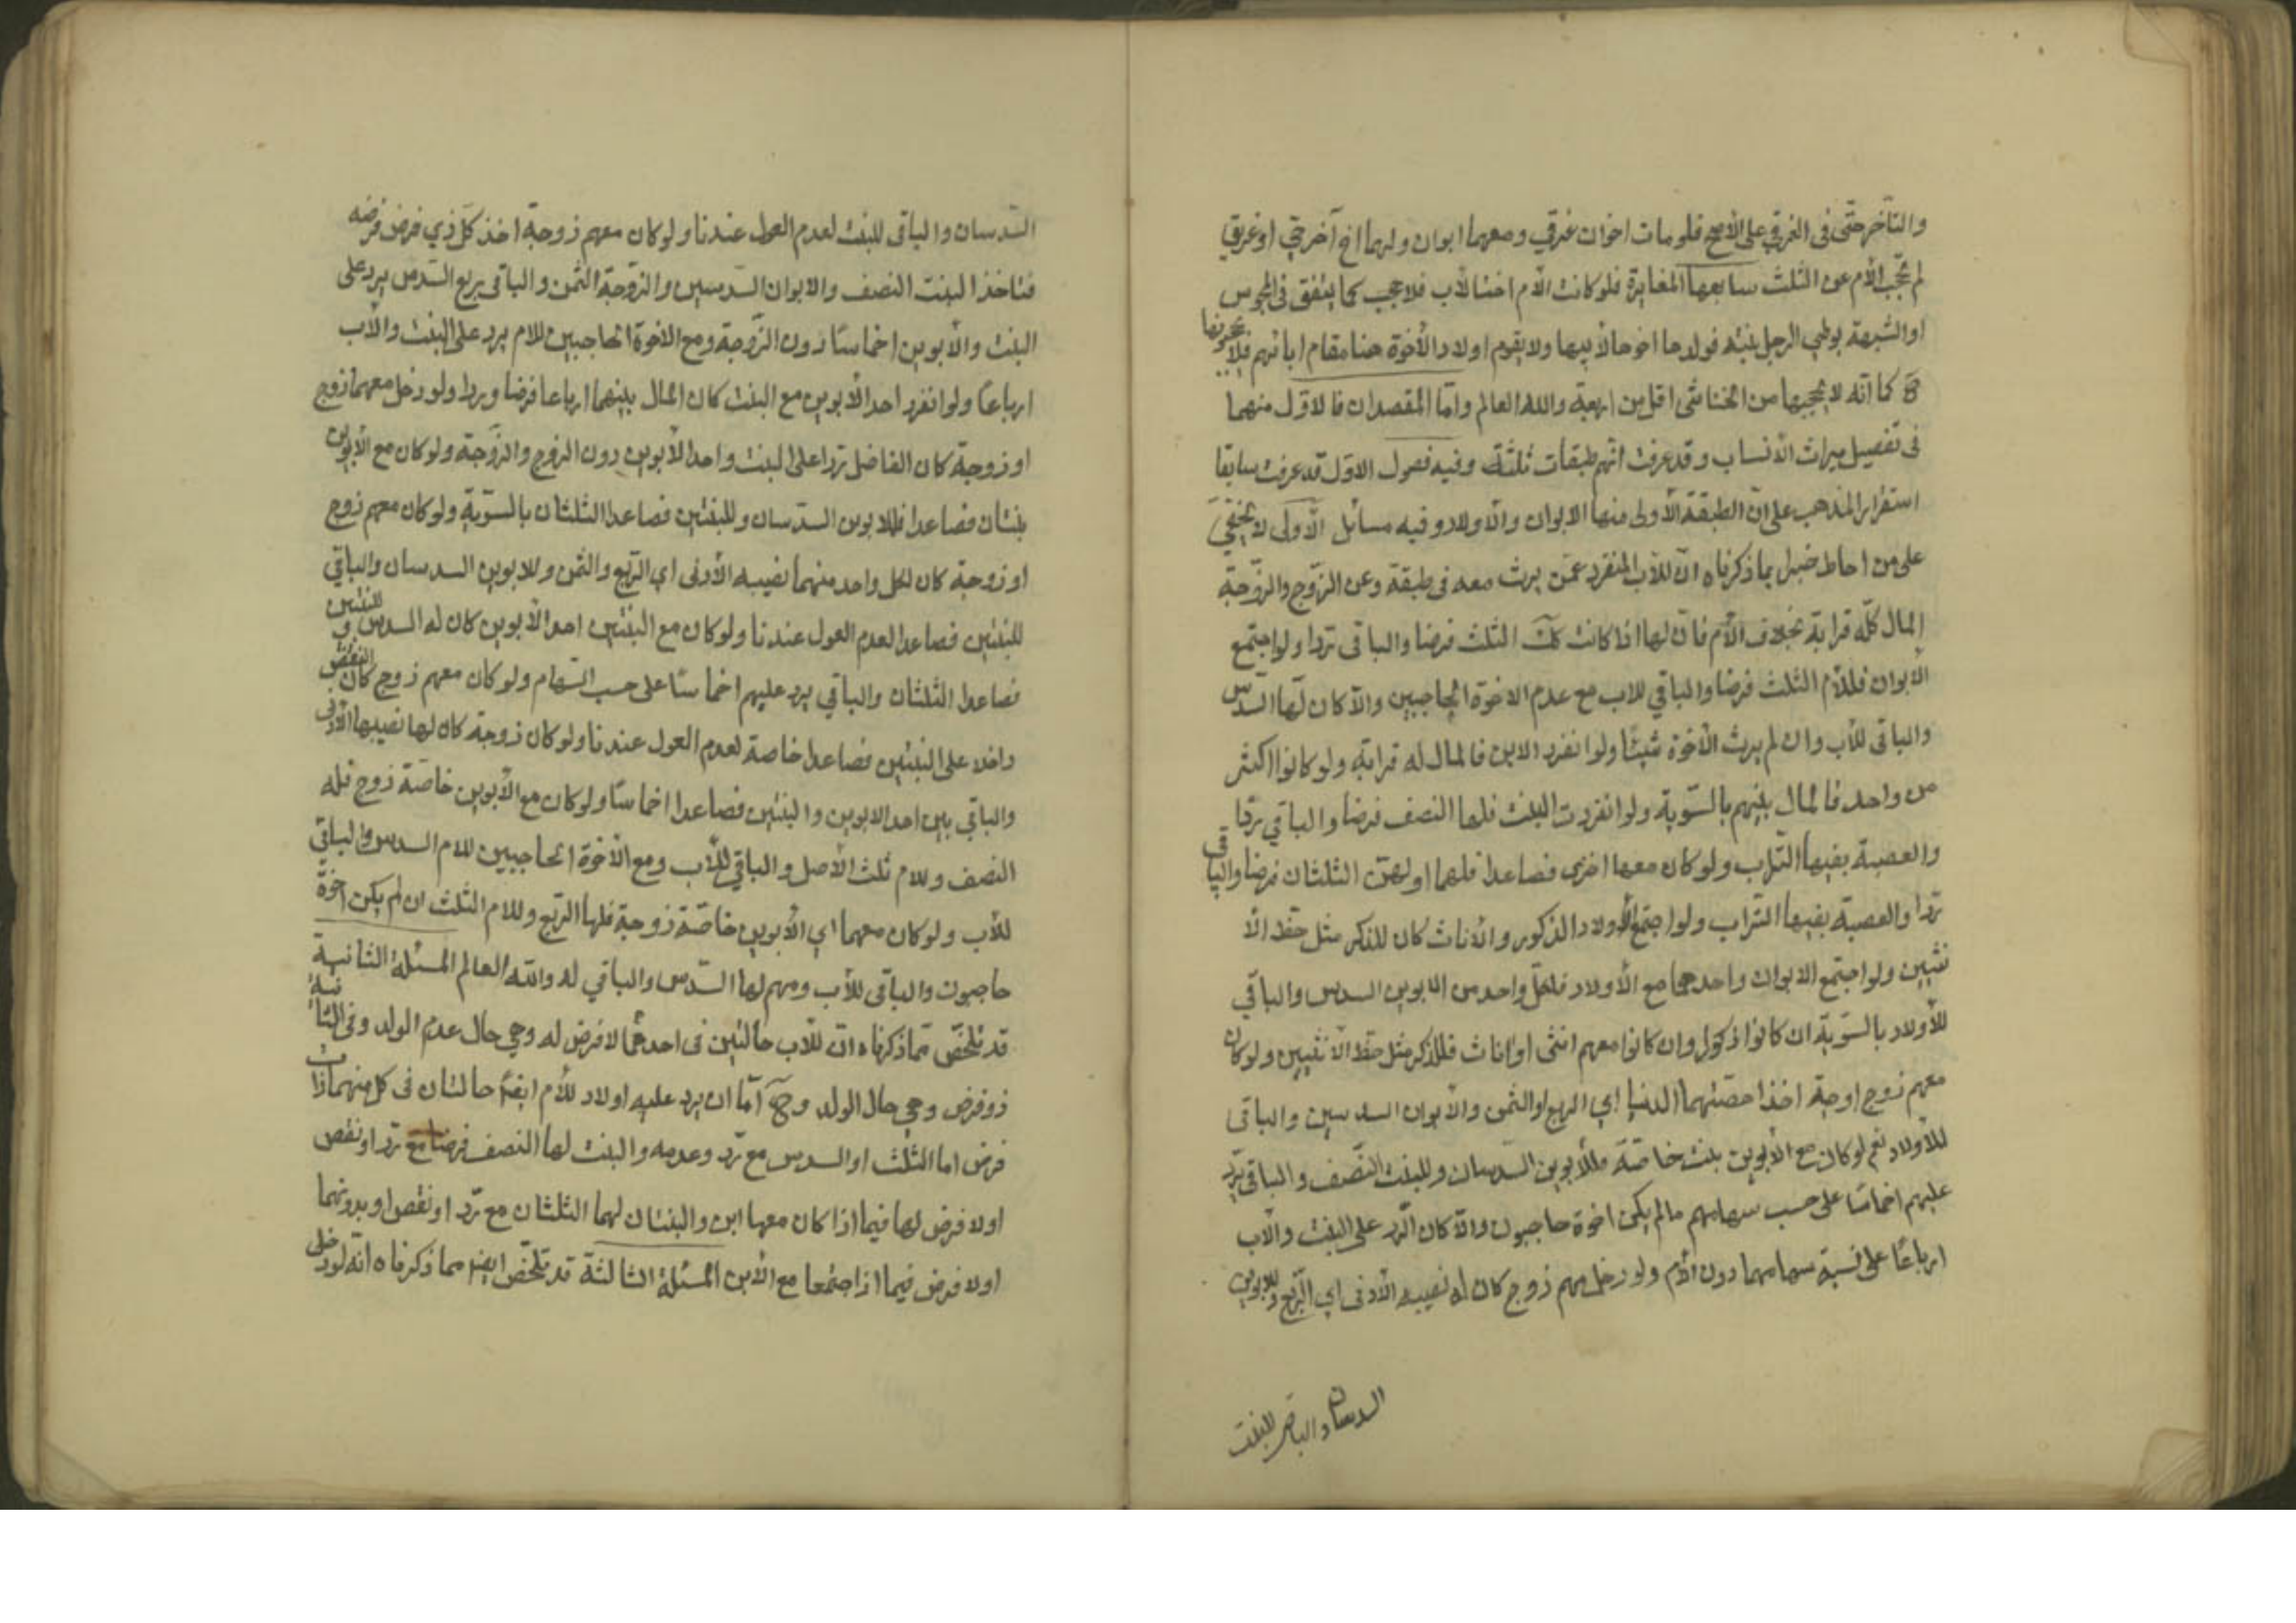 والتأخر حتى فى الغرقي على الأصح فلو مات اخوان غرقي ومعهما ابوان ولهما اخ آخر حيّ او غريق
لم تحجب الأم عن الثلث سابعها المغايرة فلو كانت الأم اختا لأب فلا حجب كما يتفق فى المجوس
او الشبهة بوطي الرجل بنته فولدها اخوها لأبيها ولا يقوم اولاد الأخوة هنا مقام ابائهم فلا يحجبونها
كما انّه لا يحجبها من الخناثى اقل من اربعة والله العالم وامّا المقصدان فالاوّل منهما
فى تفصيل ميراث الأنساب وقد عرفت انّهم طبقات ثلثة وفيه فصول الاوّل قد عرفت سابقا
استقرار المذهب على انّ الطبقة الأولى منها الابوان والأولاد وفيه مسائل الأولى لا يخفى
على من احاط خبرا بما ذكرناه انّ للأب المنفرد عمّن يرث معه فى طبقة وعن الزّوج والزّوجة
المال كلّه قرابة بخلاف الأم فانّ لها اذا كانت كك الثلث فرضا والباقى ردّا ولو اجتمع
الأبوان فللأم الثلث فرضا والباقي للاب مع عدم الاخوة الحاجبين والّا كان لها السّدس
والباقى للأب وان لم يرث الأخوة شيئا ولو انفرد الابن فالمال له قرابة ولو كانوا اكثر
من واحد فالمال بينهم بالسّوية ولو انفردت البنت فلها النصف فرضا والباقي ردّا
والعصبة بفيها التراب ولو كان معها اخرى فصاعدا فلهما او لهنّ الثلثان فرضا والباقى
ردّا والعصبة بفيها التراب ولو اجتمع الأولاد الذكور والأناث كان للذكر مثل حظ الأ
نثيين ولو اجتمع الابوان واحدهما مع الأولاد فلكلّ واحد من الابوين السدس والباقي
للأولاد بالسّوية ان كانوا ذكورا وان كانوا معهم انثى او اناث فللذكر مثل حظ الأنثيين ولو كان
معهم زوج او جة اخذا حصّتهما الدنيا اي الربع او الثمن والأبوان السدسين والباقى
للأولاد نعم لو كان مع الأبوين بنت خاصّة فللأبوين السّدسان وللبنت النّصف والباقى يردّ
عليهم اخماسا على حسب سهامهم ما لم يكن اخوة حاجبون والّا كان الرّد على البنت والأب
ارباعًا على نسبة سهامهما دون الأم ولو دخل معهم زوج كان له نصيبه الأدنى اي الرّبع وللابوين
السدسان والباقى للبنت
السّدسان والباقى للبنت لعدم العول عندنا ولو كان معهم زوجة اخذ كلّ ذي فرض فرضه
فتاخذ البنت النصف والابوان السّدسين والزّوجة الثّمن والباقى ربع السّدس يرد على
البنت والأبوين اخماسًا دون الزّوجة ومع الاخوة الحاجبين للام يرد على البنت والأب
ارباعًا ولو انفرد احد الأبوين مع البنت كان المال بينهما ارباعا فرضا وردا ولو دخل معهما زوج
او زوجة كان الفاضل ردا على البنت واحد الأبوين دون الزوج والزّوجة ولو كان مع الأبوين
بنتان فصاعدا فللابوين السّدسان وللبنتين فصاعدا الثلثان بالسّوية ولو كان معهم زوج
او زوجة كان لكل واحد منهما نصيبه الأدنى اي الرّبع والثمن وللابوين السدسان والباقي
للبنتين فصاعدا لعدم العول عندنا ولو كان مع البنتين احد الأبوين كان له السدس وللبنتين
فصاعدا الثلثان والباقي يرد عليهم اخماسًا على حسب السّهام ولو كان معهم زوج كان النقص
داخلا على البنتين فصاعدا خاصة لعدم العول عندنا ولو كان زوجة كان لها نصيبها الأدنى
والباقي بين احد الابوين والبنتين فصاعدا اخماسًا ولو كان مع الأبوين خاصّة زوج فله
النصف وللام ثلث الأصل والباقي للأب ومع الأخوة الحاجبين للام السدس والباقى
للأب ولو كان معهما اي الأبوين خاصّة زوجة فلها الرّبع وللام الثلث ان لم يكن اخوة
حاجبون والباقى للأب ومعهم لها السّدس والباقي له والله العالم المسئلة الثانية
قد تلخّص ممّا ذكرناه انّ للأب حالتين فى احدهما لا فرض له وهي حال عدم الولد وفى الثانية
ذو فرض وهي حال الولد وح امّا ان يرد عليه اولاد للأم ايضا حالتان فى كل منهما ذات
فرض اما الثلث او السدس مع ردّ وعدمه والبنت لها النصف فرضا مع ردّ او نقص
اولا فرض لها فيما اذا كان معها ابن والبنتان لهما الثلثان مع ردّ او نقص او بدونهما
اولا فرض فيما اذا اجتمعا مع الأبن المسئلة الثالثة قد تلخّص ايضا مما ذكرناه انّه لو دخل